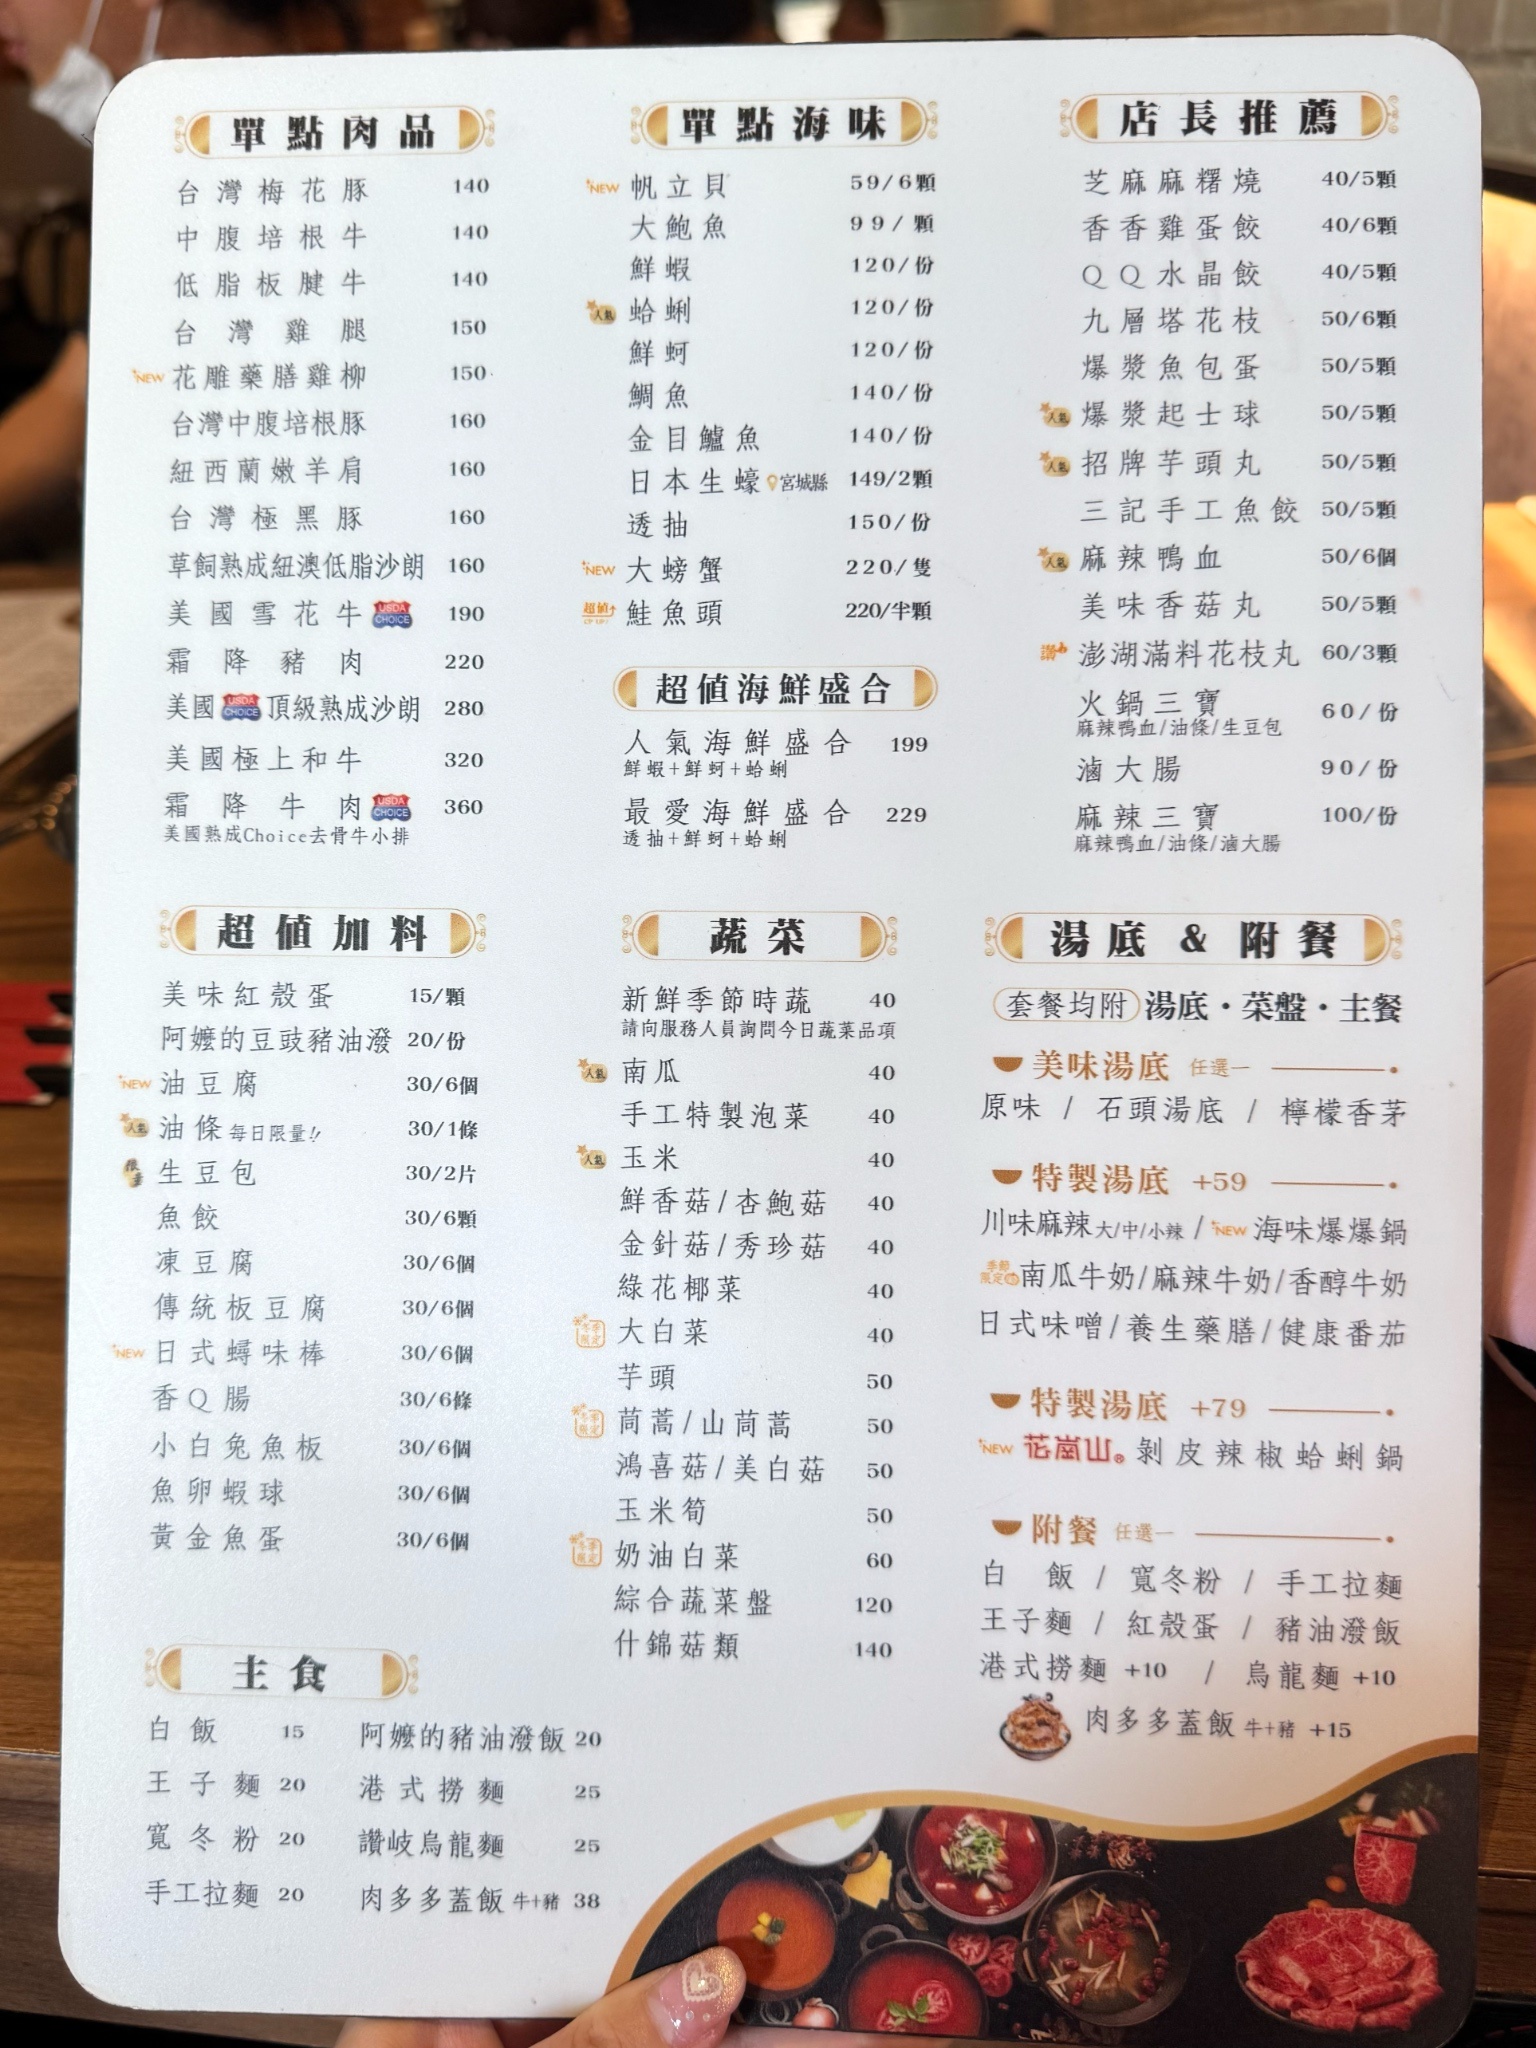 單點肉品
台灣梅花豚 140
中腹培根牛 140
低脂板腱牛 140
台灣雞腿 150
NEW 花雕藥膳雞柳 150
台灣中腹培根豚 160
紐西蘭嫩羊肩 160
台灣極黑豚 160
草飼熟成紐澳低脂沙朗 160
美國雪花牛 USDA CHOICE 190
霜降豬肉 220
美國 USDA CHOICE 頂級熟成沙朗 280
美國極上和牛 320
霜降牛肉 USDA CHOICE 360
美國熟成Choice去骨牛小排
單點海味
NEW 帆立貝 59/6顆
大鮑魚 99/顆
鮮蝦 120/份
人氣 蛤蜊 120/份
鮮蚵 120/份
鯛魚 140/份
金目鱸魚 140/份
日本生蠔 宮城縣 149/2顆
透抽 150/份
NEW 大螃蟹 220/隻
超值 鮭魚頭 220/半顆
超值海鮮盛合
人氣海鮮盛合 199
鮮蝦+鮮蚵+蛤蜊
最愛海鮮盛合 229
透抽+鮮蚵+蛤蜊
店長推薦
芝麻麻糬燒 40/5顆
香香雞蛋餃 40/6顆
QQ水晶餃 40/5顆
九層塔花枝 50/6顆
爆漿魚包蛋 50/5顆
人氣 爆漿起士球 50/5顆
人氣 招牌芋頭丸 50/5顆
三記手工魚餃 50/5顆
人氣 麻辣鴨血 50/6個
美味香菇丸 50/5顆
讚 澎湖滿料花枝丸 60/3顆
火鍋三寶 60/份
麻辣鴨血/油條/生豆包
滷大腸 90/份
麻辣三寶 100/份
麻辣鴨血/油條/滷大腸
超值加料
美味紅殼蛋 15/顆
阿嬤的豆豉豬油潑 20/份
NEW 油豆腐 30/6個
人氣 油條 每日限量!! 30/1條
限量 生豆包 30/2片
魚餃 30/6顆
凍豆腐 30/6個
傳統板豆腐 30/6個
NEW 日式蟳味棒 30/6個
香Q腸 30/6條
小白兔魚板 30/6個
魚卵蝦球 30/6個
黃金魚蛋 30/6個
蔬菜
新鮮季節時蔬 40
請向服務人員詢問今日蔬菜品項
人氣 南瓜 40
手工特製泡菜 40
人氣 玉米 40
鮮香菇/杏鮑菇 40
金針菇/秀珍菇 40
綠花椰菜 40
冬季限定 大白菜 40
芋頭 50
冬季限定 茼蒿/山茼蒿 50
鴻喜菇/美白菇 50
玉米筍 50
冬季限定 奶油白菜 60
綜合蔬菜盤 120
什錦菇類 140
湯底 & 附餐
套餐均附 湯底・菜盤・主餐
美味湯底 任選一
原味 / 石頭湯底 / 檸檬香茅
特製湯底 +59
川味麻辣大/中/小辣 / NEW 海味爆爆鍋
季節限定 南瓜牛奶/麻辣牛奶/香醇牛奶
日式味噌/養生藥膳/健康番茄
特製湯底 +79
NEW 花崗山® 剝皮辣椒蛤蜊鍋
附餐 任選一
白飯 / 寬冬粉 / 手工拉麵
王子麵 / 紅殼蛋 / 豬油潑飯
港式撈麵 +10 / 烏龍麵 +10
肉多多蓋飯 牛+豬 +15
主食
白飯 15 阿嬤的豬油潑飯 20
王子麵 20 港式撈麵 25
寬冬粉 20 讚岐烏龍麵 25
手工拉麵 20 肉多多蓋飯 牛+豬 38